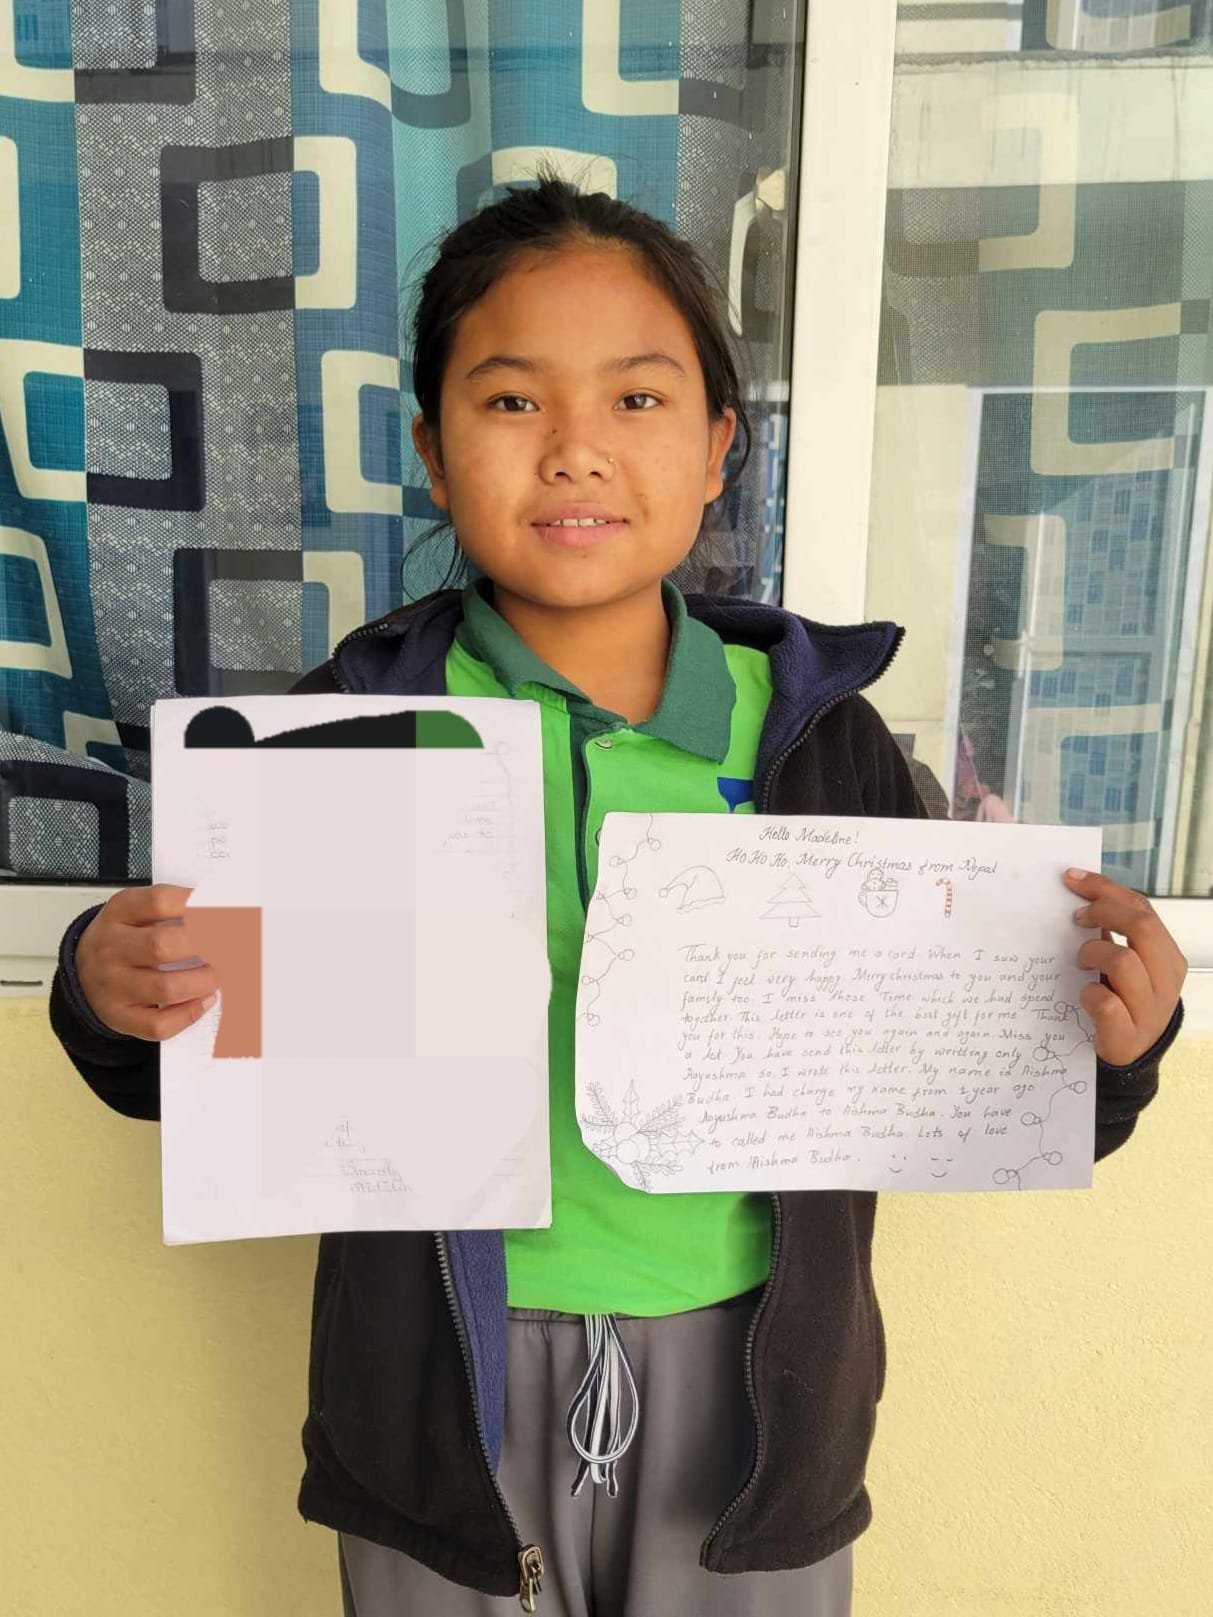 Sincerely
Hello Madeline!
Ho Ho Ho, Merry Christmas from Nepal
Thank you for sending me a card. When I saw your
card I feel very happy. Merry christmas to you and your
family too. I miss those Time which we had spend
together. This letter is one of the best gift for me. Thank
you for this. Hope to see you again and again. Miss you
a lot. You have send this letter by writting only
Aayushma so, I wrote this letter. My name is Aishma
Budha. I had change my name from 1 year ago
Aayushma Budha to Aishma Budha. You have
to called me Aishma Budha. Lots of love
from Aishma Budha.